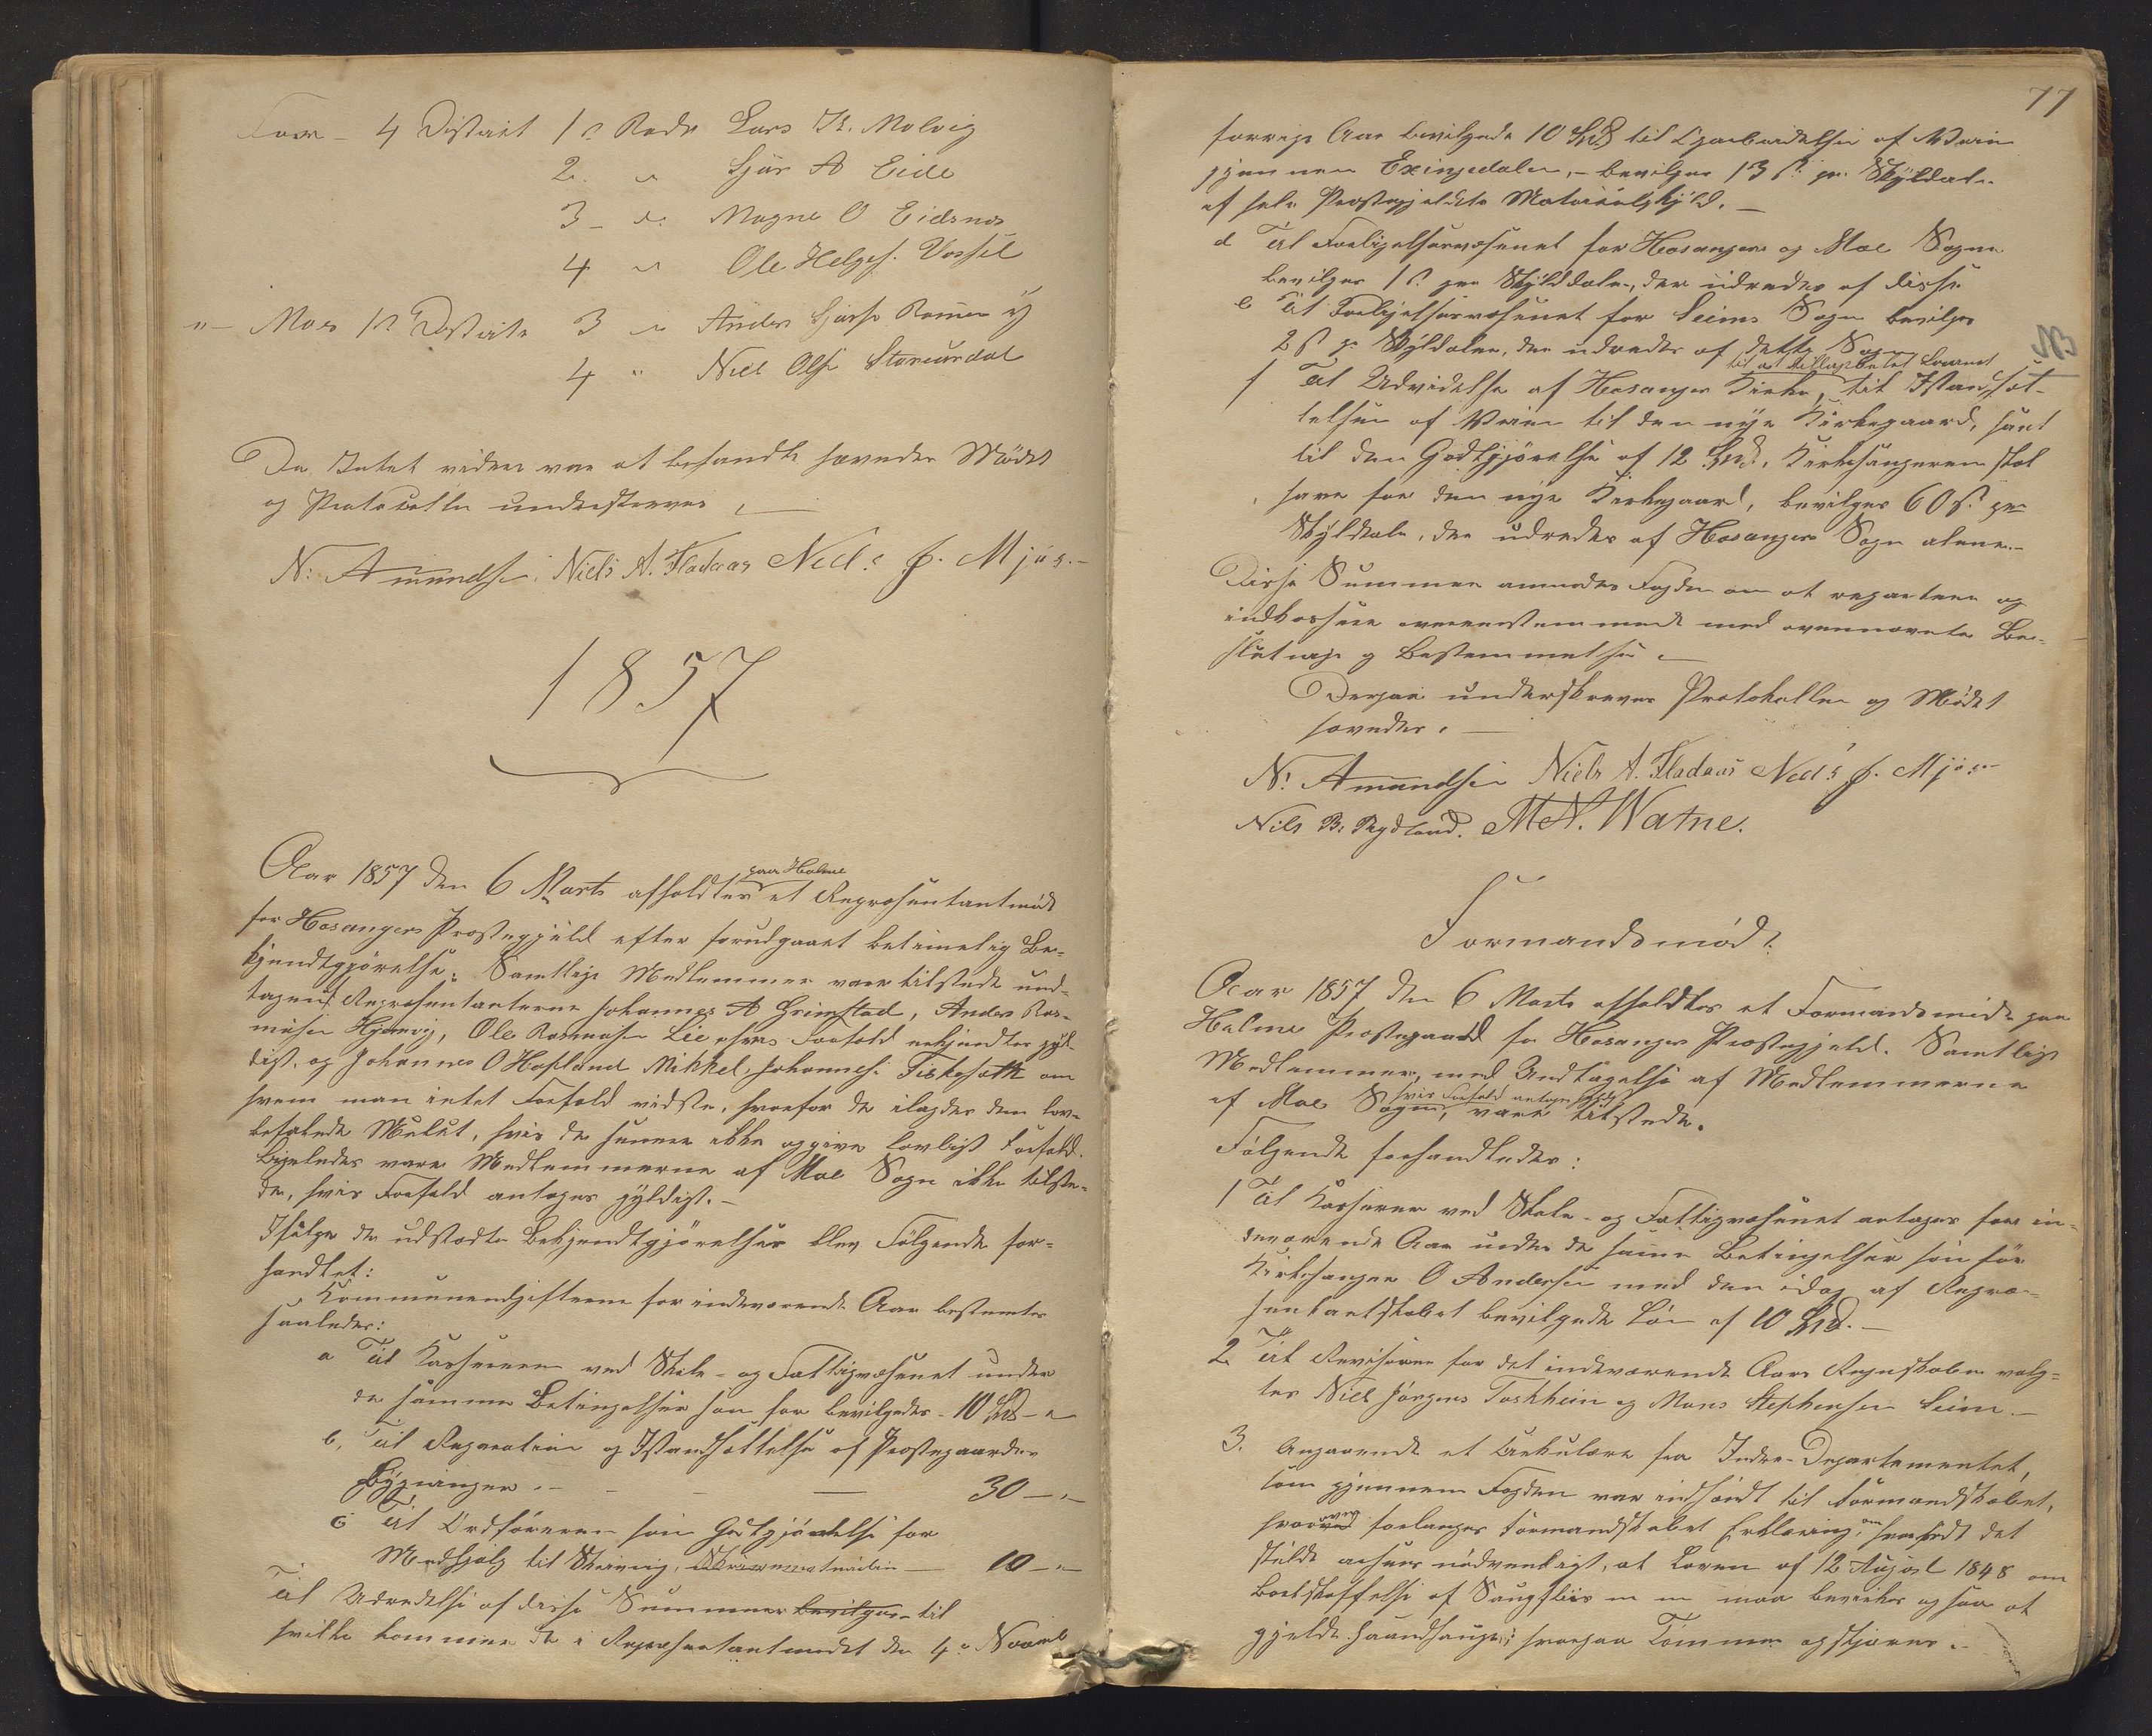 For – 4 District 1ste Rode Lars K. Molvig
2. " Sjur A Eide
3 – do Magne O Eidsnes
4 " Ole Helges. Vassel
"– Moes 1ste District 3 " Anders
4 " Niel Olse Storeurdal
Da Intet videre var at behandle hævedes Mödet
og Protocollen underskreves,
N: Amundsen. Niels A. Fladaas Neels J. Mjøs.–
1857
Aar 1857 den 6 Marts afholdtes paa Halme et Repræsentantmöde
for Hosangers Præstegjeld efter forudgaaet betimelig Be-
kjendtgjörelse. Samtlige Medlemmer vare tilstede und-
tagen Repræsentanterne Johannes A Grimstad, Anders Ras-
musen Hjemvig, Ole Rasmusen Lie hvis Forfald erkjendtes gyl-
digt, og Johannes O Hopland Mikkel Johannes. Fiskesæth om
hvem man intet Forfald vidste, hvorfor de ilagdes den lov-
befalede Mulct, hvis de senere ikke opgive lovligt Forfald.
Ligeledes vare Medlemmerne af Moe Sogn ikke tilste-
de, hvis Forfald antoges gyldigt.–
Ifölge de udstædte Bekjendtgjörelser blev Fölgende for-
handlet:
Kommuneudgifterne for indeværende Aar bestemtes
saaledes:
a Til Kassereren ved Skole- og Fattigvæsenet under
de samme Betingelser som för bevilgedes – 10 Spd – "
b, Til Reparation og Istandsættelse af Præstegaardens
Bygninger. – – – 30 – "–
c Til Ordföreren som Godtgjörelse for
Medhjælp til Skrivning, Skrivematerialier – 10 – "–
Til Udredelse af disse Summer bevilges til
hvilke kommer de i Repræsentantmödet den 4de Novemb
77
forrige Aar bevilgede 10 Spd til Oparbeidelse af Veien
gjennem Exingedalen, – bevilges 13 s. pr. Skylddaler
af hele Præstegjeldets Matrikulskyld. –
d Til Forligelsesvæsenet for Hosangers og Moe Sogne
bevilges 1 s. per Skylddaler, der udredes af disse
e Til Forligelsesvæsenet for Seims Sogn bevilges
2 s pr Skylddaler, der udredes af dette Sogn. NB
f Til Udvidelse af Hosanger Kirke, til Istandsæt-
telsen af Veien til den nye Kirkegaard, samt
til den Godtgjörelse af 12 Spd. Kirkesangeren skal
have for den nye Kirkegaard, bevilges 60 s. per
Skylddaler, der udredes af Hosangers Sogn alene.–
Disse Summer anmodes Fogden om at repartere og
indkassere overeenstemmende med ovennævnte Be-
slutning og Bestemmelser. –
Derpaa underskreves Protokollen og Mödet
hævedes. –
N: Amundsen Niels A. Fladaas Neels J. Mjøs–
Nils B. Rydland. M N. Watne.
Formandsmöde.
Aar 1857 den 6 Marts afholdtes et Formandsmöde paa
Halme Præstegaard for Hosanger Præstegjeld. Samtlige
Medlemmer, med Undtagelse af Medlemmerne
af Moe Sogn, hvis Forfald antoges gyldigt vare tilstede.
Fölgende forhandledes:
1 Til Kasserer ved Skole- og Fattigvæsenet antoges for in-
deværende Aar under de samme Betingelser som för
Kirkesanger O Andersen med den idag af Repræ-
sentantskabet bevilgede Lön af 10 Spd. –
2. Til Revisorer for det indeværende Aars Regnskaber valg-
tes Niel Jörgens Toskheim og Mons Stephensen Seim. –
3. Angaaende et Cirkulære fra Indre-Departementet,
som gjennem Fogden var indsendt til Formandskabet,
hvorved forlanges Formandskabet Erklæring, om hvorvidt det
skulde ansees nödvendigt, at Loven af 12 August 1848 om
Bortskaffelse af Saugfliis m m maa bevirkes ogsaa at
gjelde Haandsauge, hvorpaa Tömmer opskjæres. –